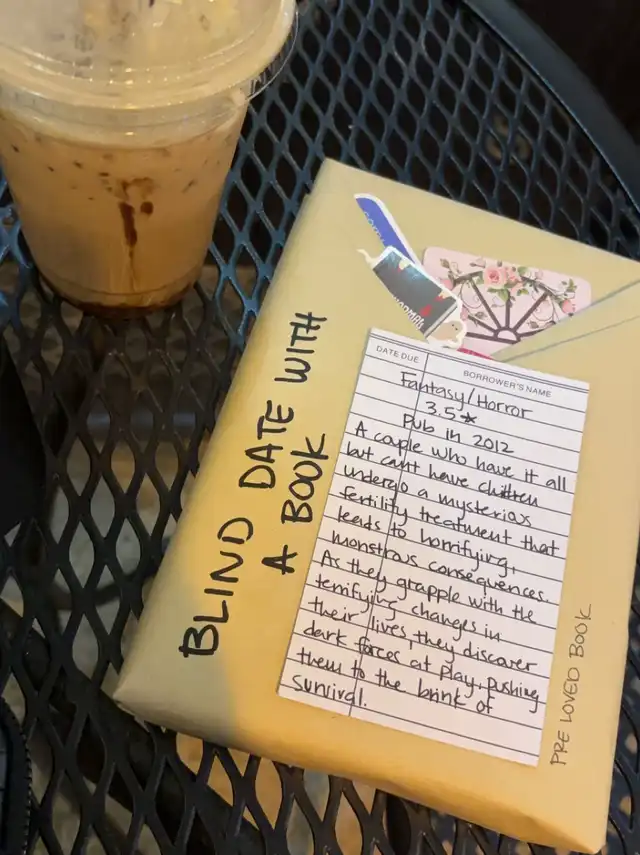 BLIND DATE WITH
A BOOK
DATE DUE
BORROWER'S NAME
Fantasy/Horror
3.5*
Pub in 2012
A couple who have it all
but can't have children
undergo a mysterias
fertility treatment that
leads to horrifying,
monstrous consequences.
As they grapple with the
terrifying changes in
their lives, they discover
dark forces at play, pushing
them to the brink of
survival.
PRE LOVED BOOK